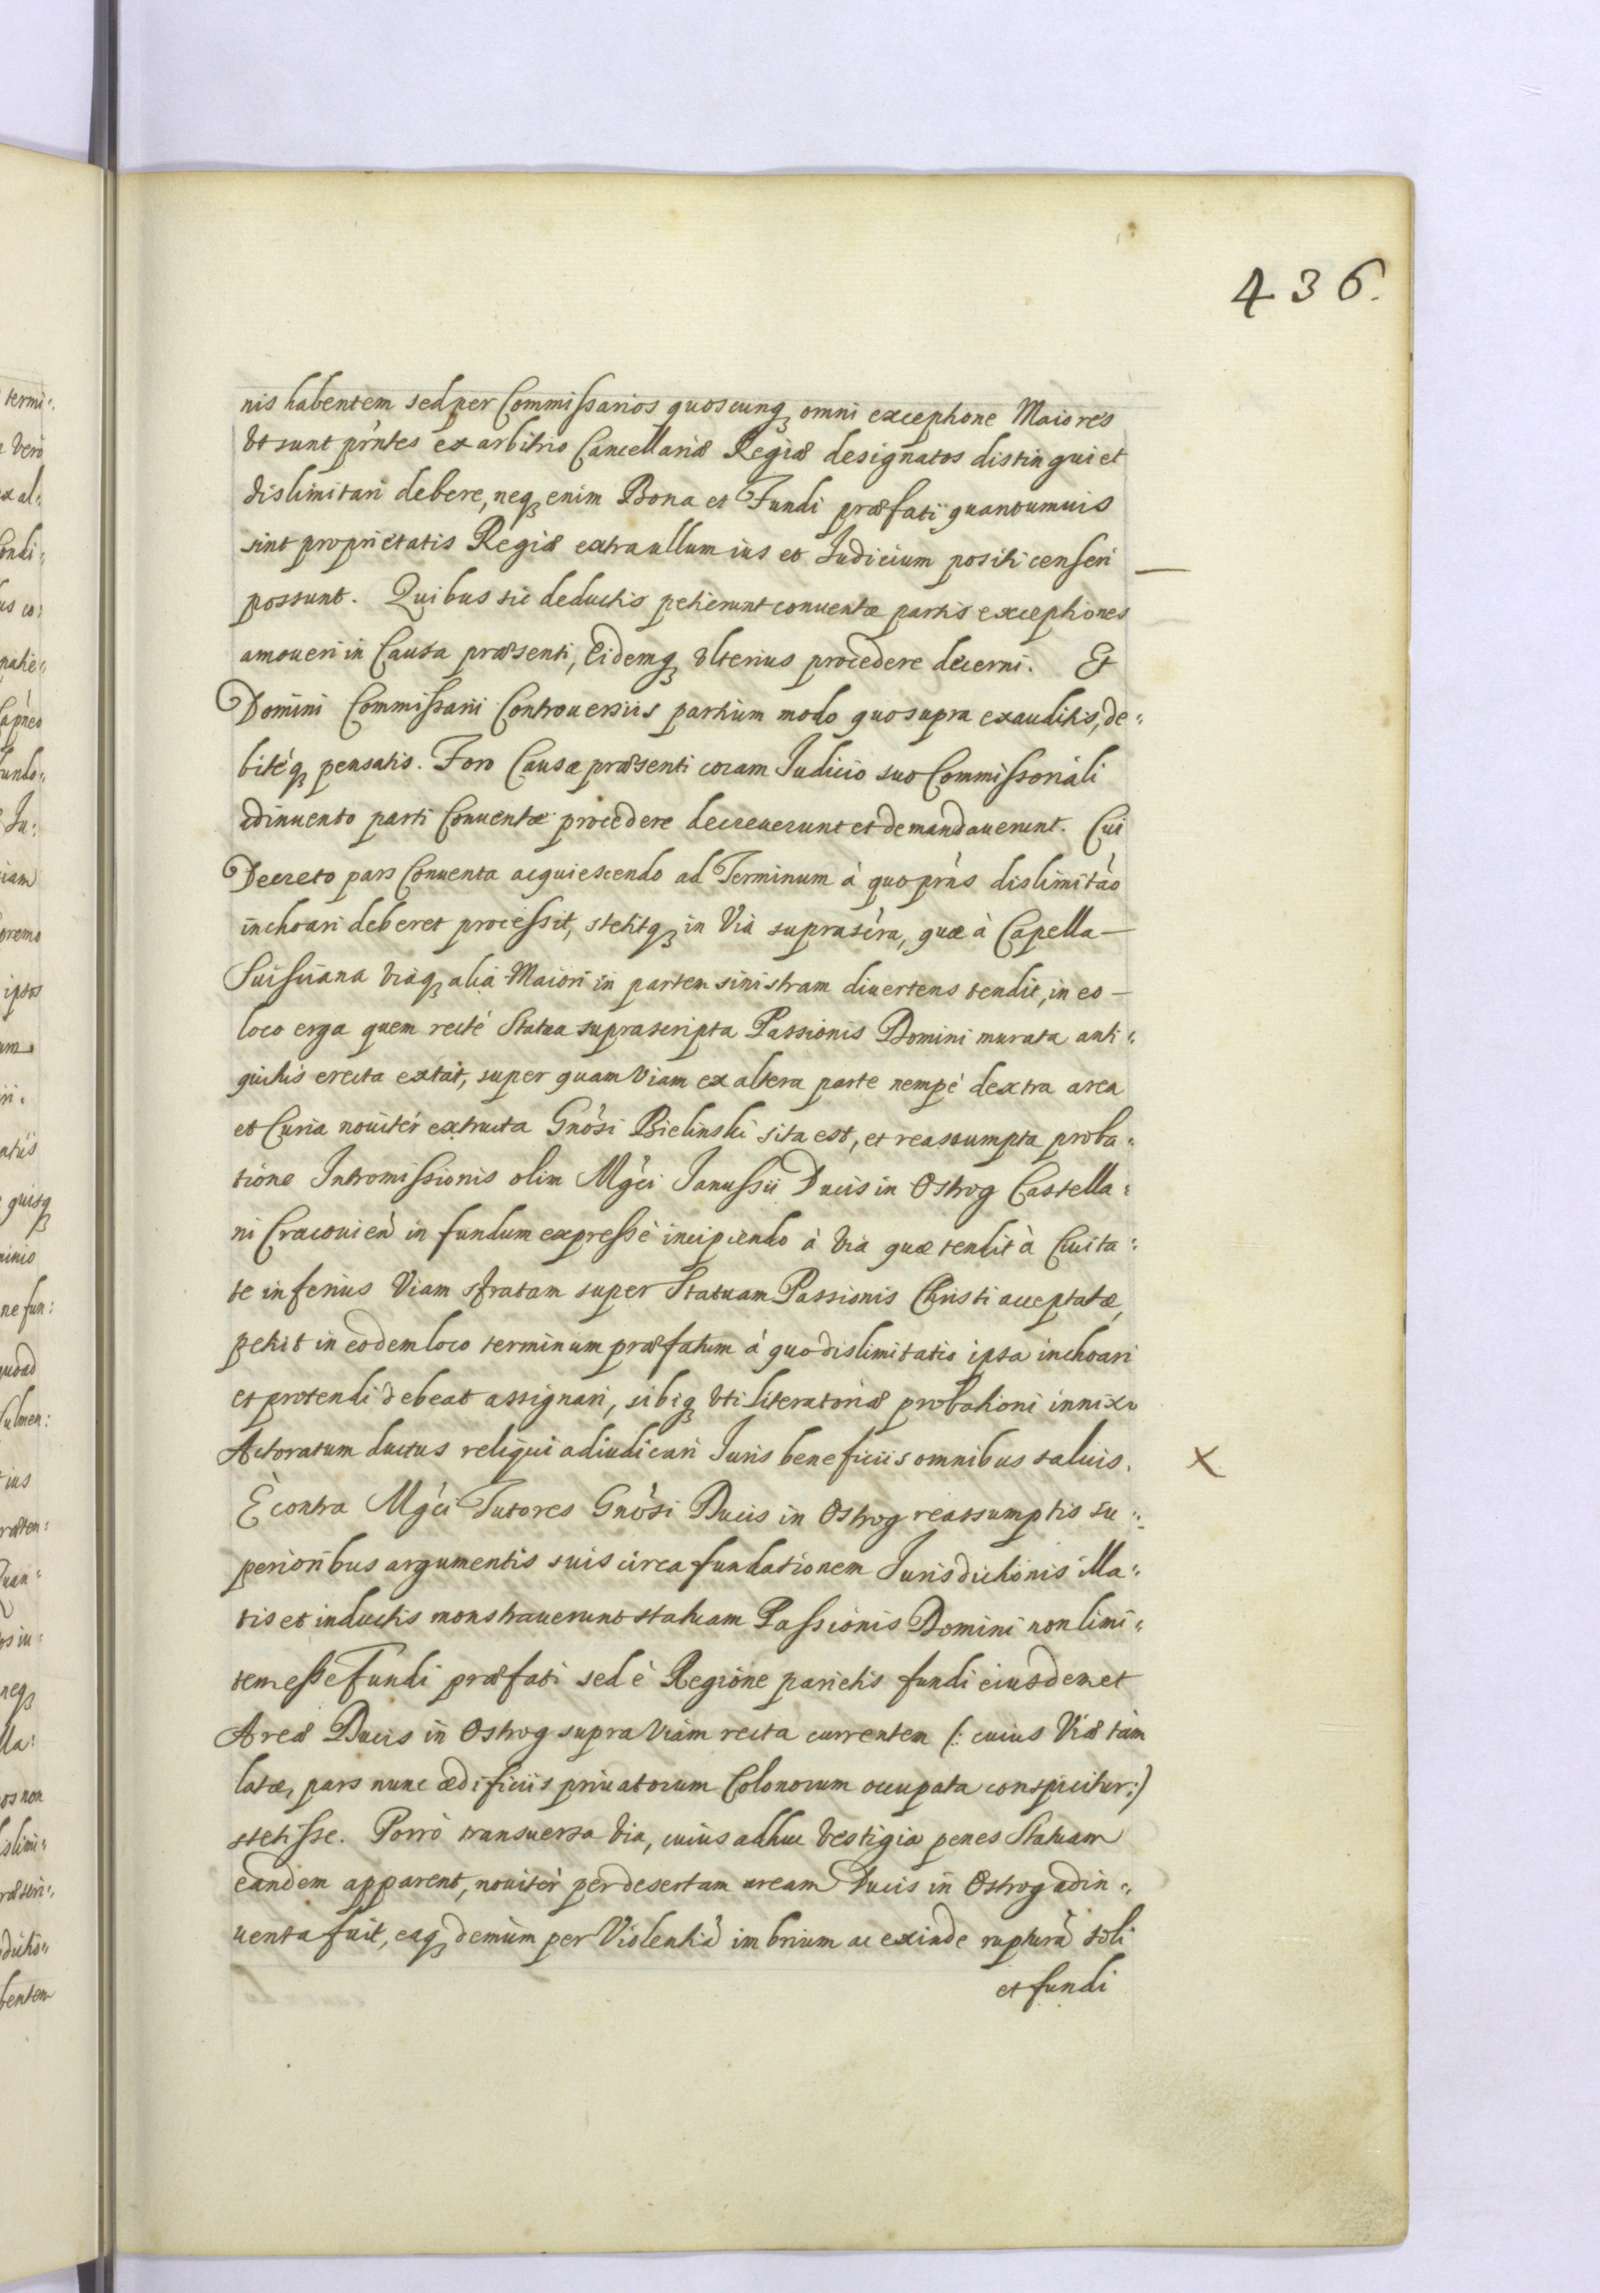 436.
nis habentem sed per Commissarios quoscunq omni exceptione Maiores
Vt sunt pr̃ntes ex arbitrio Cancellariæ Regiæ designatos distingui et
dislimitari debere, neq enim Bona et Fundi præfati quantumuis
sint proprietatis Regiæ extra ullum ius et Iudicium positi censeri —
possunt. Quibus sic deductis petierunt conuentæ partis exceptiones
amoueri in Causa præsenti, Eidemq Vlterius procedere decerni. Et
Domini Commissarii Controuersiis partium modo quo supra exauditis, de:
bitéq pensatis. Foro Causæ præsenti coram Iudicio suo Commissoriali
adinuento parti Conuentæ procedere decreuerunt et demandauerunt. Cui
Decreto pars Conuenta acquiescendo ad Terminum à quo prñs dislimitão
inchoari deberet processit, stetitq in Via suprascra, quæ à Capella —
Suisciana viaq alia Maiori in partem sinistram diuertens tendit, in eo —
loco erga quem recté Statua suprascripta Passionis Domini murata anti:
quitis erecta extat, super quam Viam ex altera parte nempè dextra area
et Curia nouitèr extructa Gnõsi Bielinski sita est, et reassumpta proba:
tione Intromissionis olim Mgci Ianussii Ducis in Ostrog Castella:
ni Cracouień in fundum expressè incipiendo à Via quæ tendit à Ciuita:
te inferius Viam stratam super Statuam Passionis Christi acceptatæ,
petit in eodem loco terminum præfatum à quo dislimitatio ipsa inchoari
et protendi debeat assignari, sibiq Vti literatoriæ probationi innixo
Actoratum ductus reliqui adiudicari Iuris beneficiis omnibus saluis. X
È contra Mgci Tutores Gnõsi Ducis in Ostrog reassumptis su:
perioribus argumentis suis circa fundationem Iurisdictionis illa:
tis et inductis monstrauerunt statuam Passionis Domini non limi:
tem esse Fundi præfati sed è Regione parietis fundi eiusdem et
Areæ Ducis in Ostrog supra Viam recta currentem (: cuius Viæ tam
latæ, pars nunc ædificiis priuatorum Colonorum occupata conspicitur:)
stetisse. Porrò transuersa Via, cuius adhuc Vestigia penes Statuam
eandem apparent, nouitèr per desertam aream Ducis in Ostrog adin:
uenta fuit, eaq demùm per Violentiã imbrium ac exinde rupturã soli
et fundi